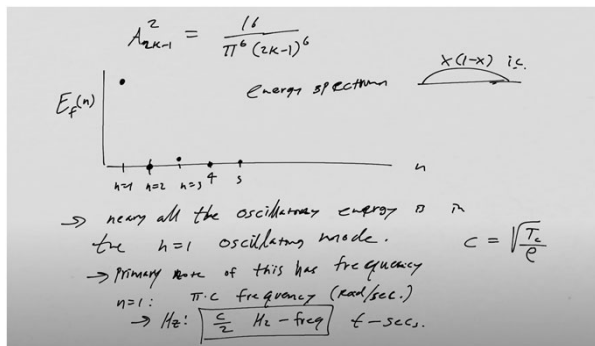 A²₂ₖ₋₁ = 16 / π⁶ (2k-1)⁶
x(1-x) i.c.
energy spectrum
E_f(n)
n=1 n=2 n=3 4 5 n
→ nearly all the oscillatory energy is in
the n=1 oscillatory mode.
c = √(T_c/ρ)
→ Primary note of this has frequency
n=1: π·c frequency (rad/sec.)
→ Hz: c/2 Hz - freq t - secs.